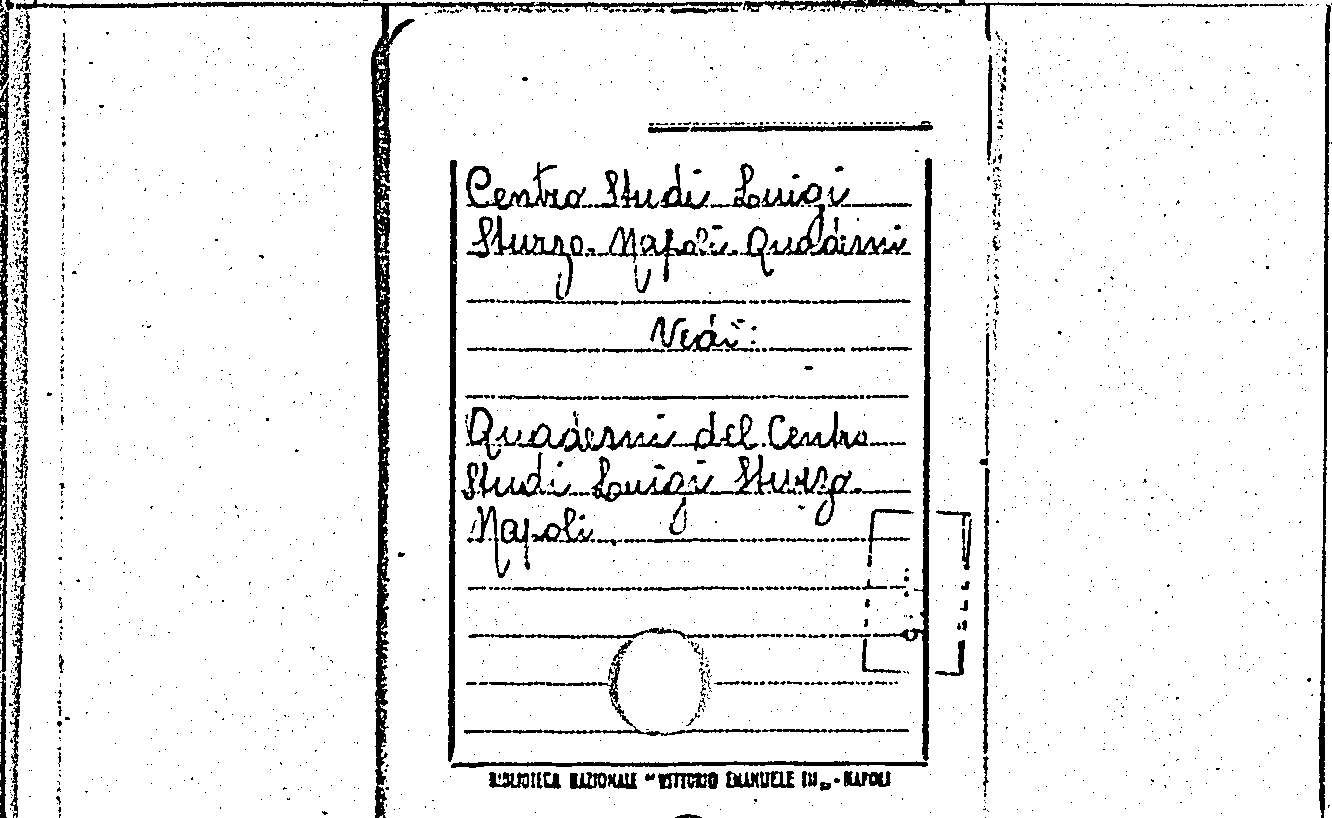 Centro Studi Luigi
Sturzo. Napoli. Quaderni
Vedi:
Quaderni del Centro
Studi Luigi Sturzo.
Napoli.
BIBLIOTECA NAZIONALE "VITTORIO EMANUELE III„ - NAPOLI